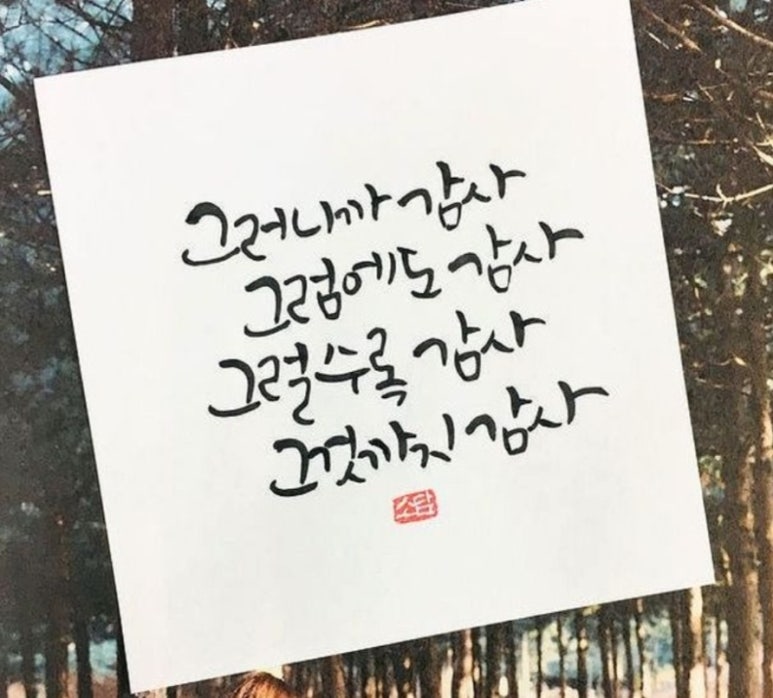 그러니까 감사
그럼에도 감사
그럴수록 감사
그것까지 감사
소담